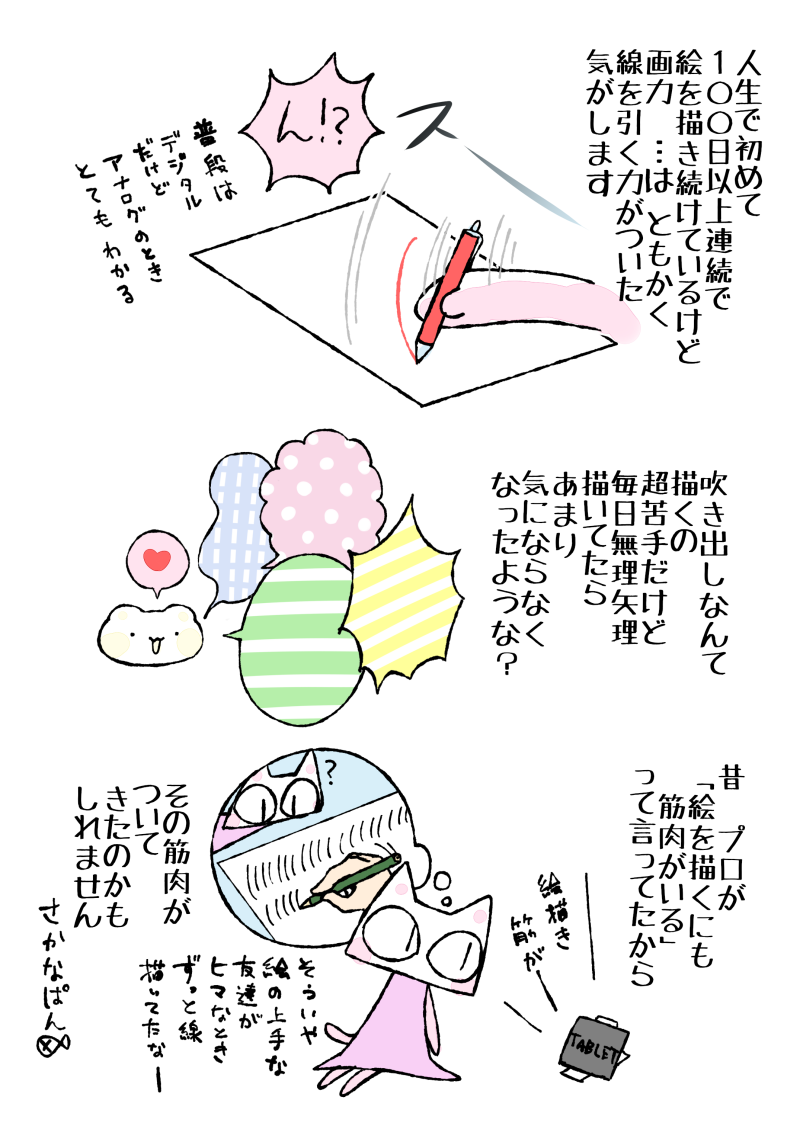 人生で初めて
１〇〇日以上連続で
絵を描き続けているけど
画力…は ともかく
線を引く力がついた
気がします
ス
ん!?
普段は
デジタル
だけど
アナログのとき
とても わかる
吹き出しなんて
描くの
超苦手だけど
毎日無理矢理
描いてたら
あまり
気にならなく
なったような？
昔 プロが
「絵を描くにも
筋肉がいる」
って言ってたから
絵描き
筋がー
TABLET
?
その筋肉が
ついて
きたのかも
しれません
そういや
絵の上手な
友達が
ヒマなとき
ずっと線
描いてたなー
さかなぱん